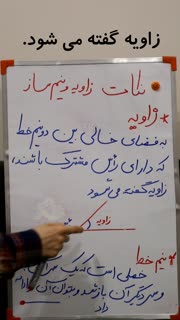 زاویه گفته می شود.
نکات زاویه و نیم ساز
* زاویه
به فضای خالی بین دو نیم خط
که دارای رأس مشترک باشند،
زاویه گفته می شود
زاویه
* نیم خط
خطی است که یک سر آن
و سر دیگر آن باز باشد و بتوان آن ادامه
داد